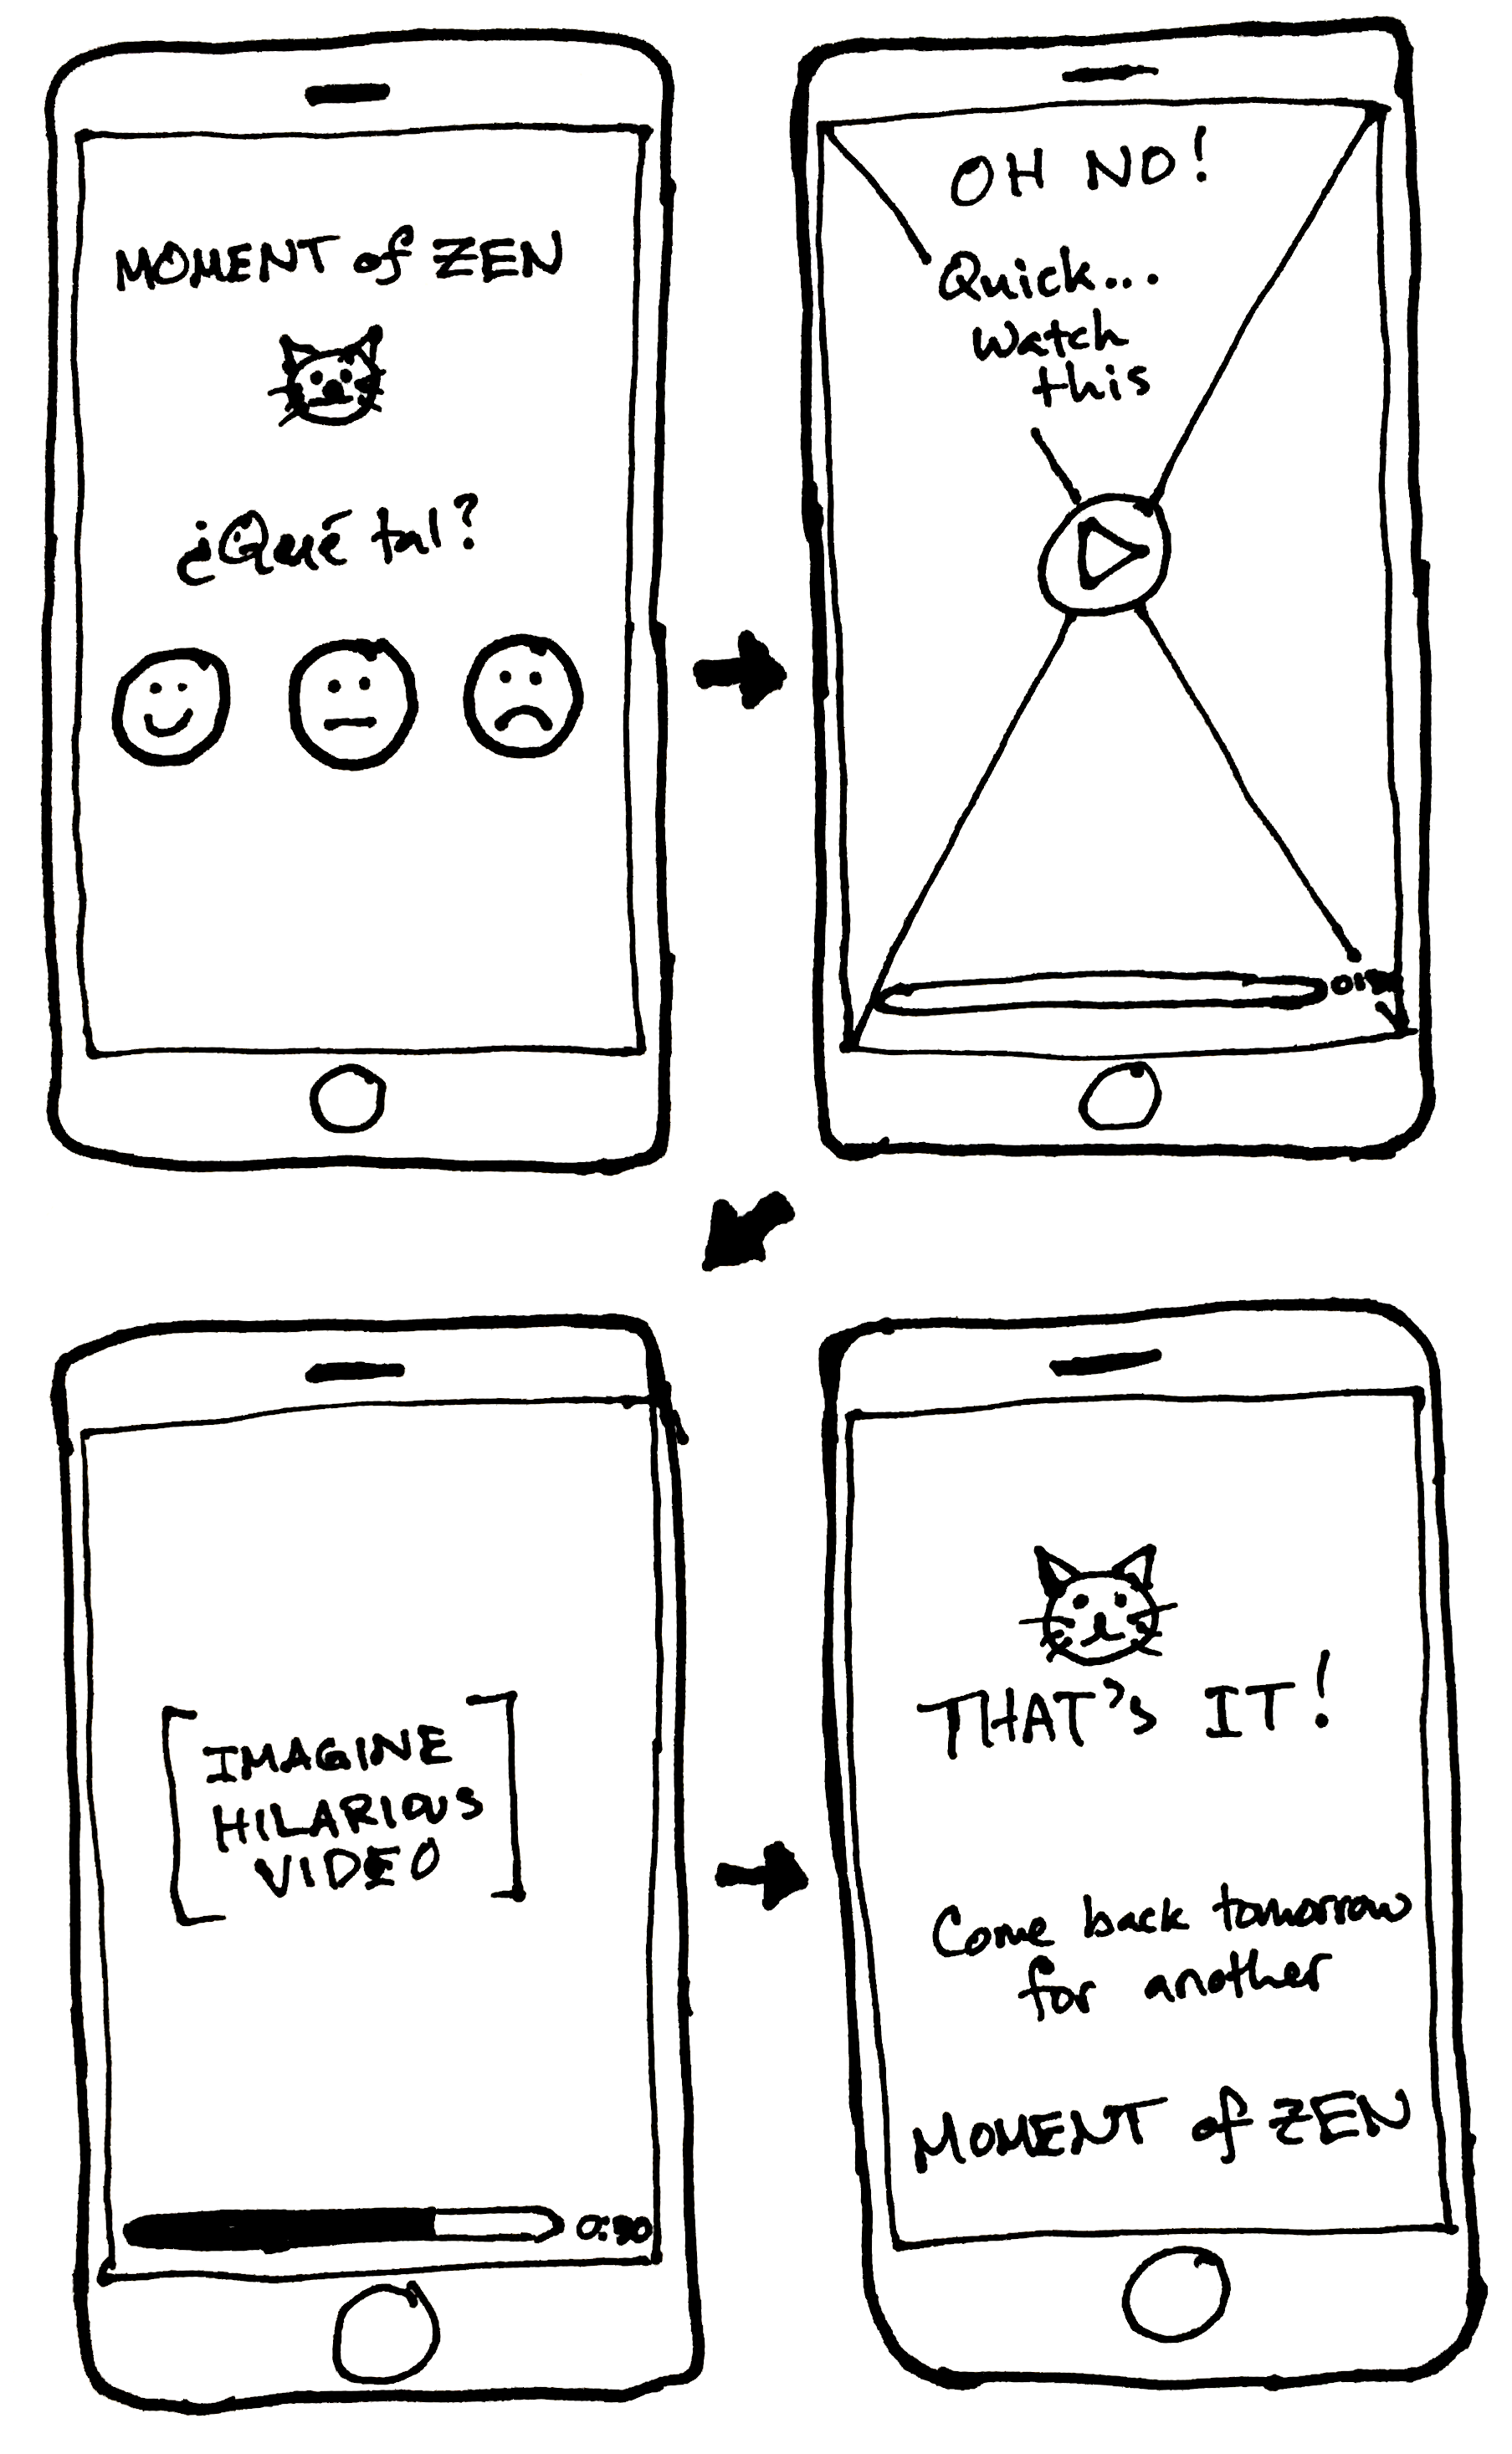 MOMENT of ZEN
¿Qué tal?
OH NO!
Quick...
Watch
this
[IMAGINE
HILARIOUS
VIDEO]
0:30
THAT'S IT!
Come back tomorrow
for another
MOMENT of ZEN